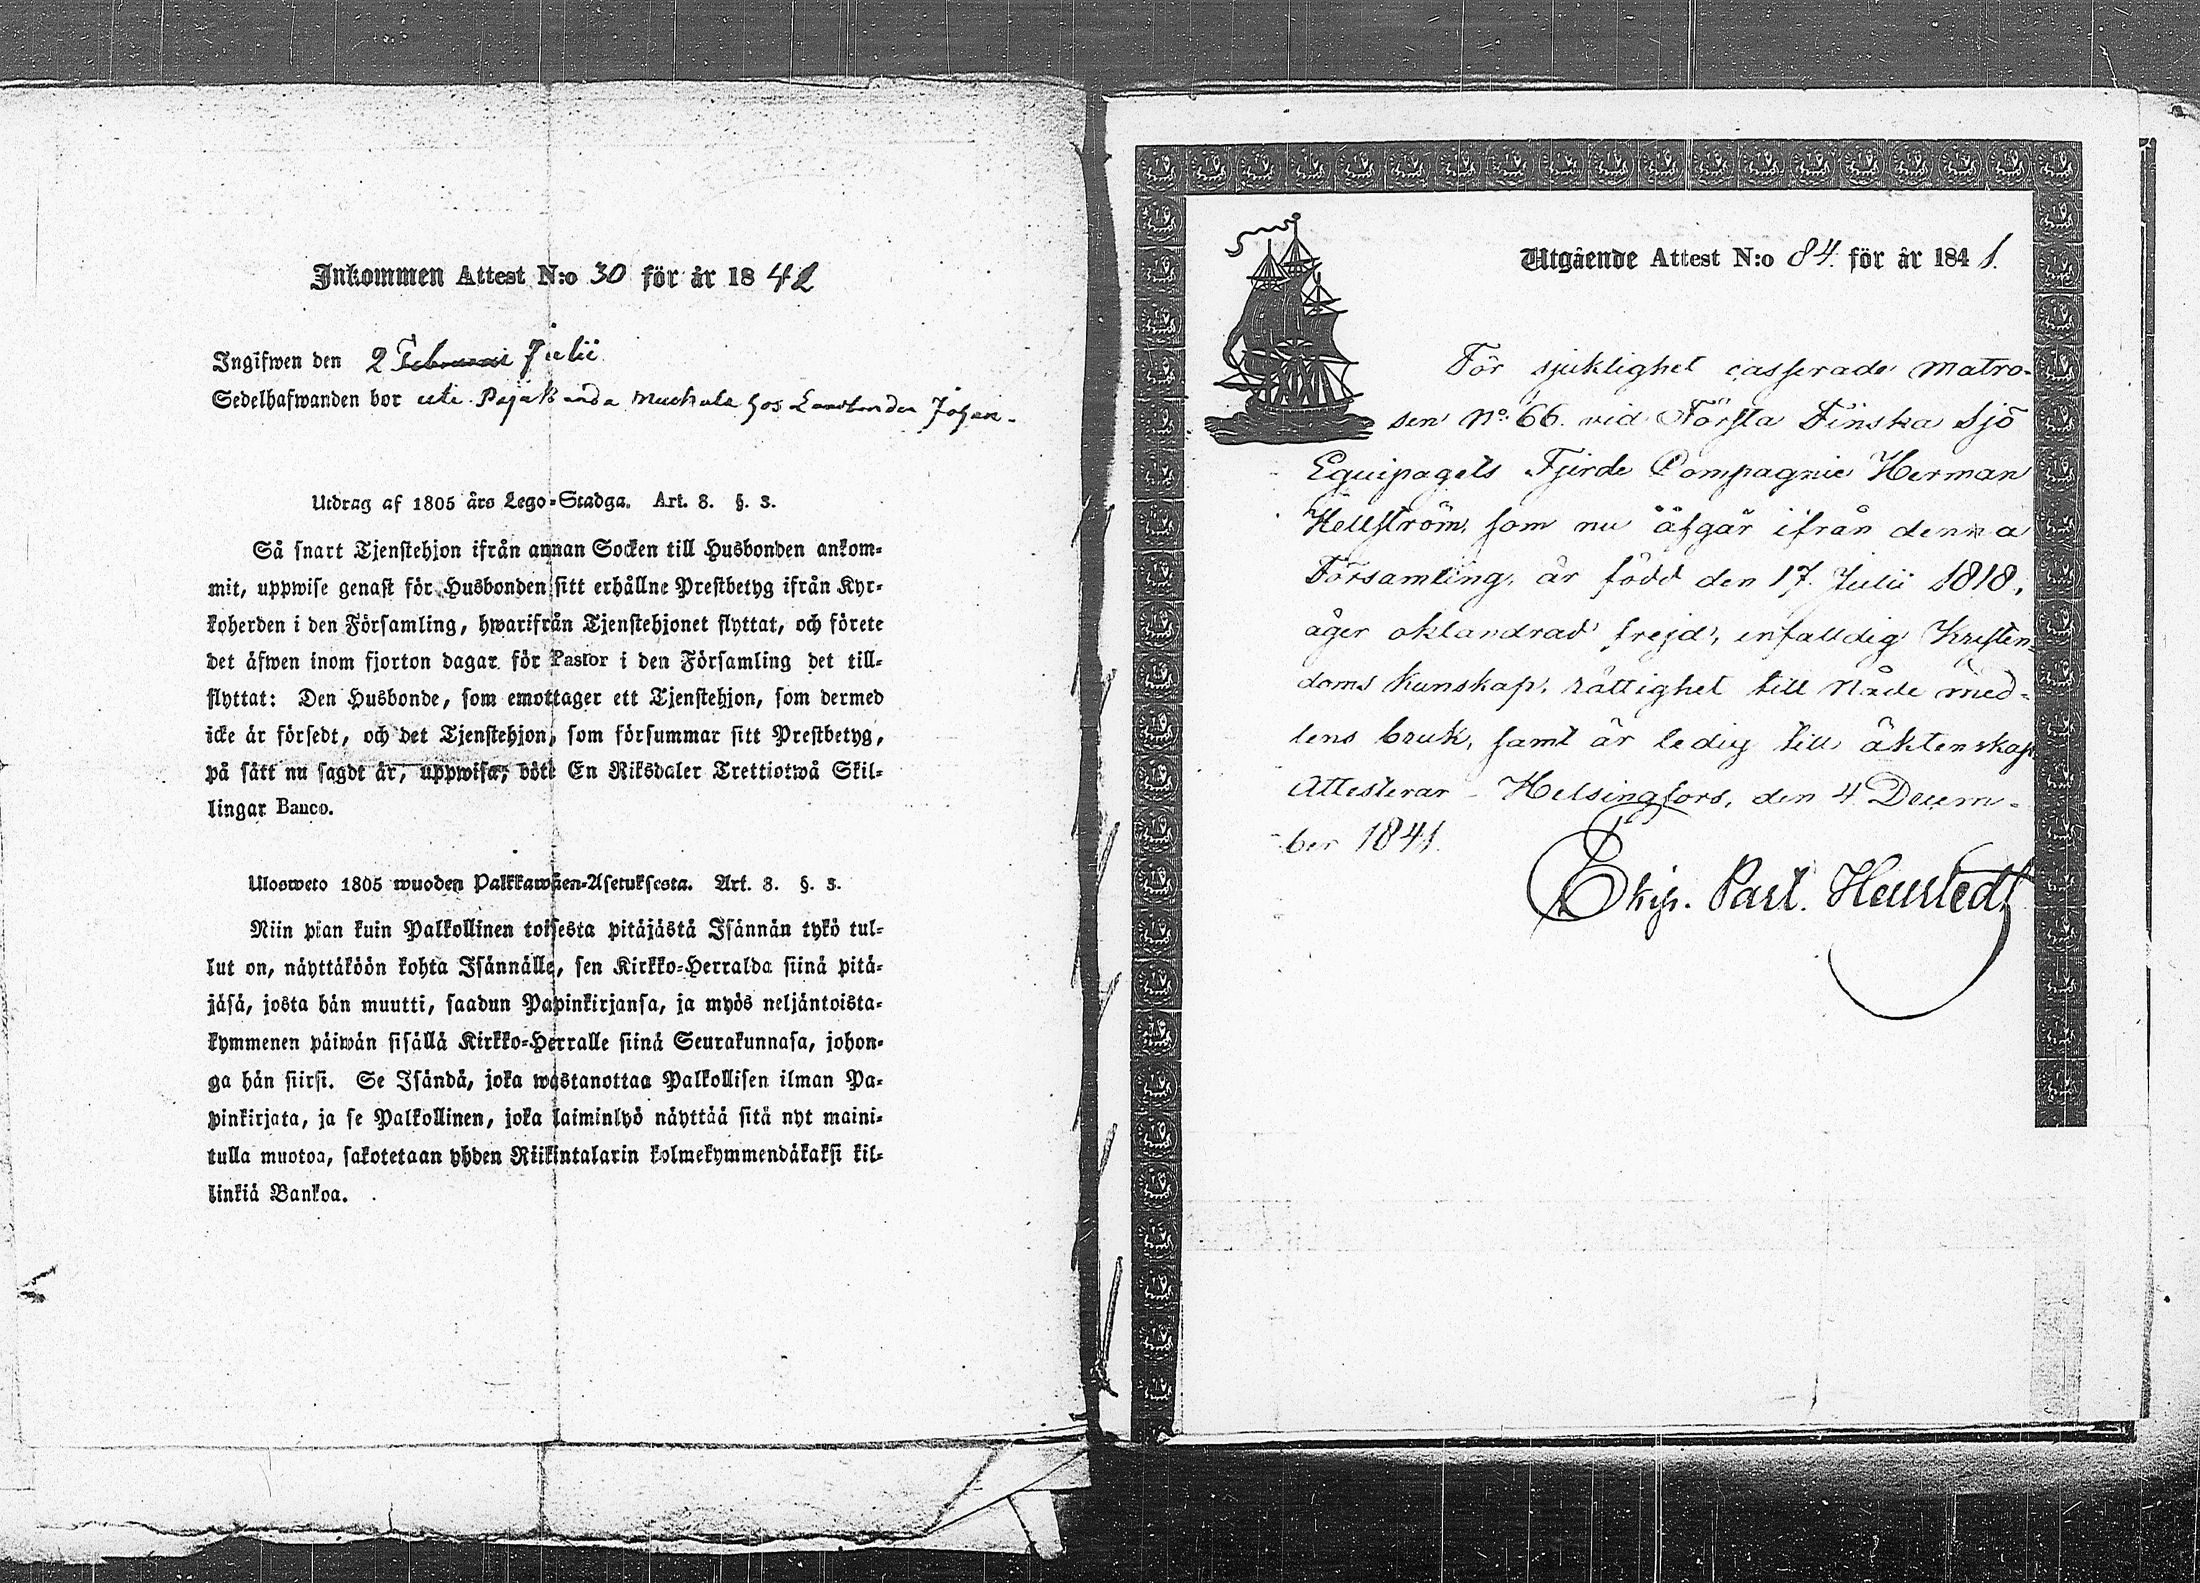 Inkommen Attest N:o 30 för år 1842
Ingifwen den 2 Februari Julii
Sedelhafwanden bor uti Pajukanda hos Landbonden Johan
Utdrag af 1805 års Lego-Stadga. Art. 8. §. 3.
Så snart Tjenstehjon ifrån annan Socken till Husbonden ankom-
mit, uppwise genast för Husbonden sitt erhållne Prestbetyg ifrån Kyr-
koherden i den Församling, hwarifrån Tjenstehjonet flyttat, och förete
det äfwen inom fjorton dagar för Pastor i den Församling det till-
flyttat: Den Husbonde, som emottager ett Tjenstehjon, som dermed
icke är försedt, och det Tjenstehjon, som försummar sitt Prestbetyg,
på sätt nu sagdt är, uppwisa, böte En Riksdaler Trettiotwå Skil-
lingar Banco.
Ulosweto 1805 wuoden Palkkawäen-Asetuksesta. Art. 8. §. 3.
Niin pian kuin Palkollinen toisesta pitäjästä Isännän tykö tul-
lut on, näyttäköön kohta Isännälle, sen Kirkko-Herralda siinä pitä-
jäsä, josta hän muutti, saadun Papinkirjansa, ja myös neljäntoista-
kymmenen päiwän sisällä Kirkko-Herralle siinä Seurakunnasa, johon-
ga hän siirsi. Se Isändä, joka wastanottaa Palkollisen ilman Pa-
pinkirjata, ja se Palkollinen, joka laiminlyö näyttää sitä nyt maini-
tulla muotoa, sakotetaan yhden Riikintalarin kolmekymmendäkaksi kil-
linkiä Bankoa.
Utgående Attest N:o 84. för år 1841.
För sjuklighet casserade Matro-
sen No. 66. vid Första Finska Sjö
Equipagets Fjerde Compagnie Herman
Hellström, som nu afgår ifrån denna
Församling, är född den 17. Julii 1818,
äger oklandrad frejd, enfalldig Kristen-
doms kunskap, rättighet till Nåde med-
lens bruk, samt är ledig till äktenskap.
Attesterar Helsingfors, den 4 Decem-
ber 1841.
Ekip. Past. Hellstedt